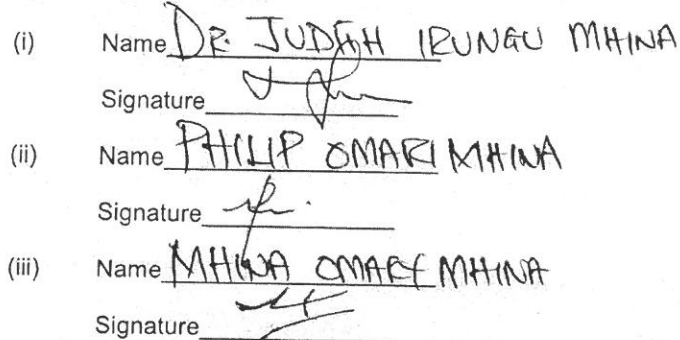 (i) Name DR. JUDAH IRUNGU MHINA
Signature
(ii) Name PHILIP OMARI MHINA
Signature
(iii) Name MHINA OMARY MHINA
Signature